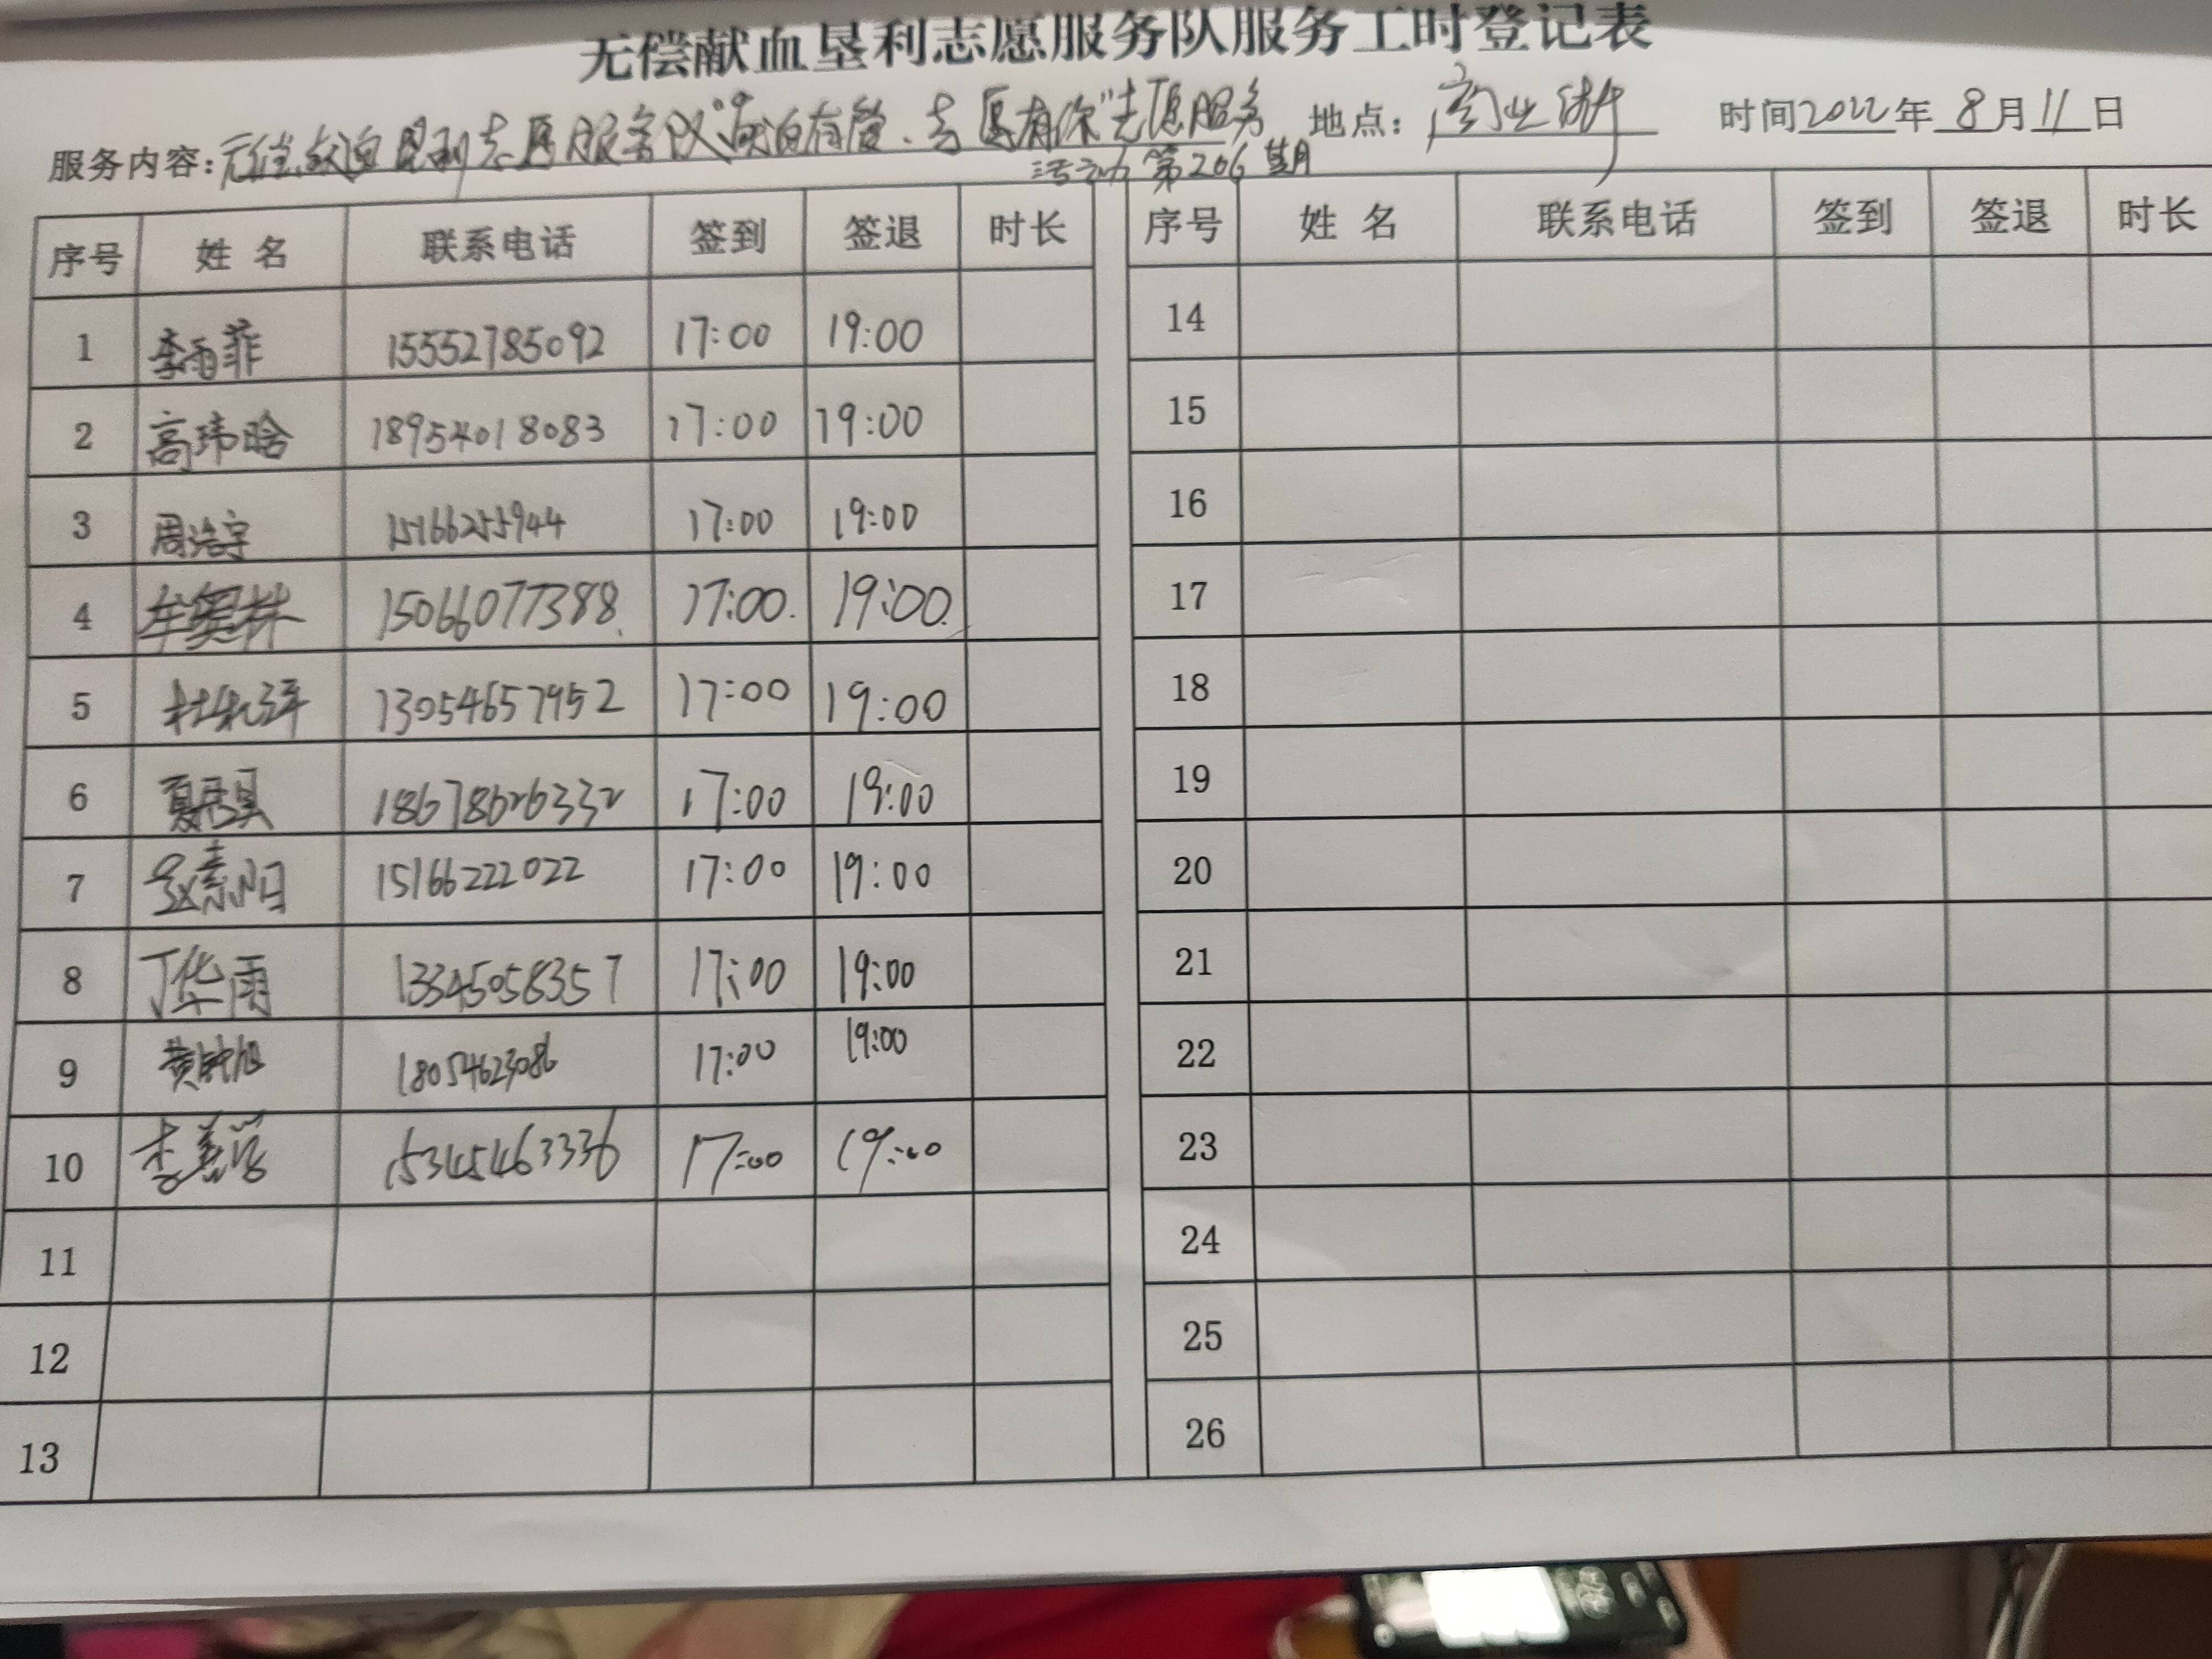 无偿献血垦利志愿服务队服务工时登记表
服务内容:无偿献血垦利志愿服务队"有 志愿有你"志愿服务 地点:商业街 时间2022年8月11日
活动第206期
序号 姓名 联系电话 签到 签退 时长 序号 姓名 联系电话 签到 签退 时长
1 李雨菲 15552785092 17:00 19:00 14
2 高玮晗 18954018083 17:00 19:00 15
3 周浩宇 15166255944 17:00 19:00 16
4 牟奥林 15066077388 17:00 19:00 17
5 13054657952 17:00 19:00 18
6 18678626332 17:00 19:00 19
7 15166222022 17:00 19:00 20
8 丁华雨 13345058357 17:00 19:00 21
9 18054623086 17:00 19:00 22
10 15345463336 17:00 19:00 23
11 24
12 25
13 26